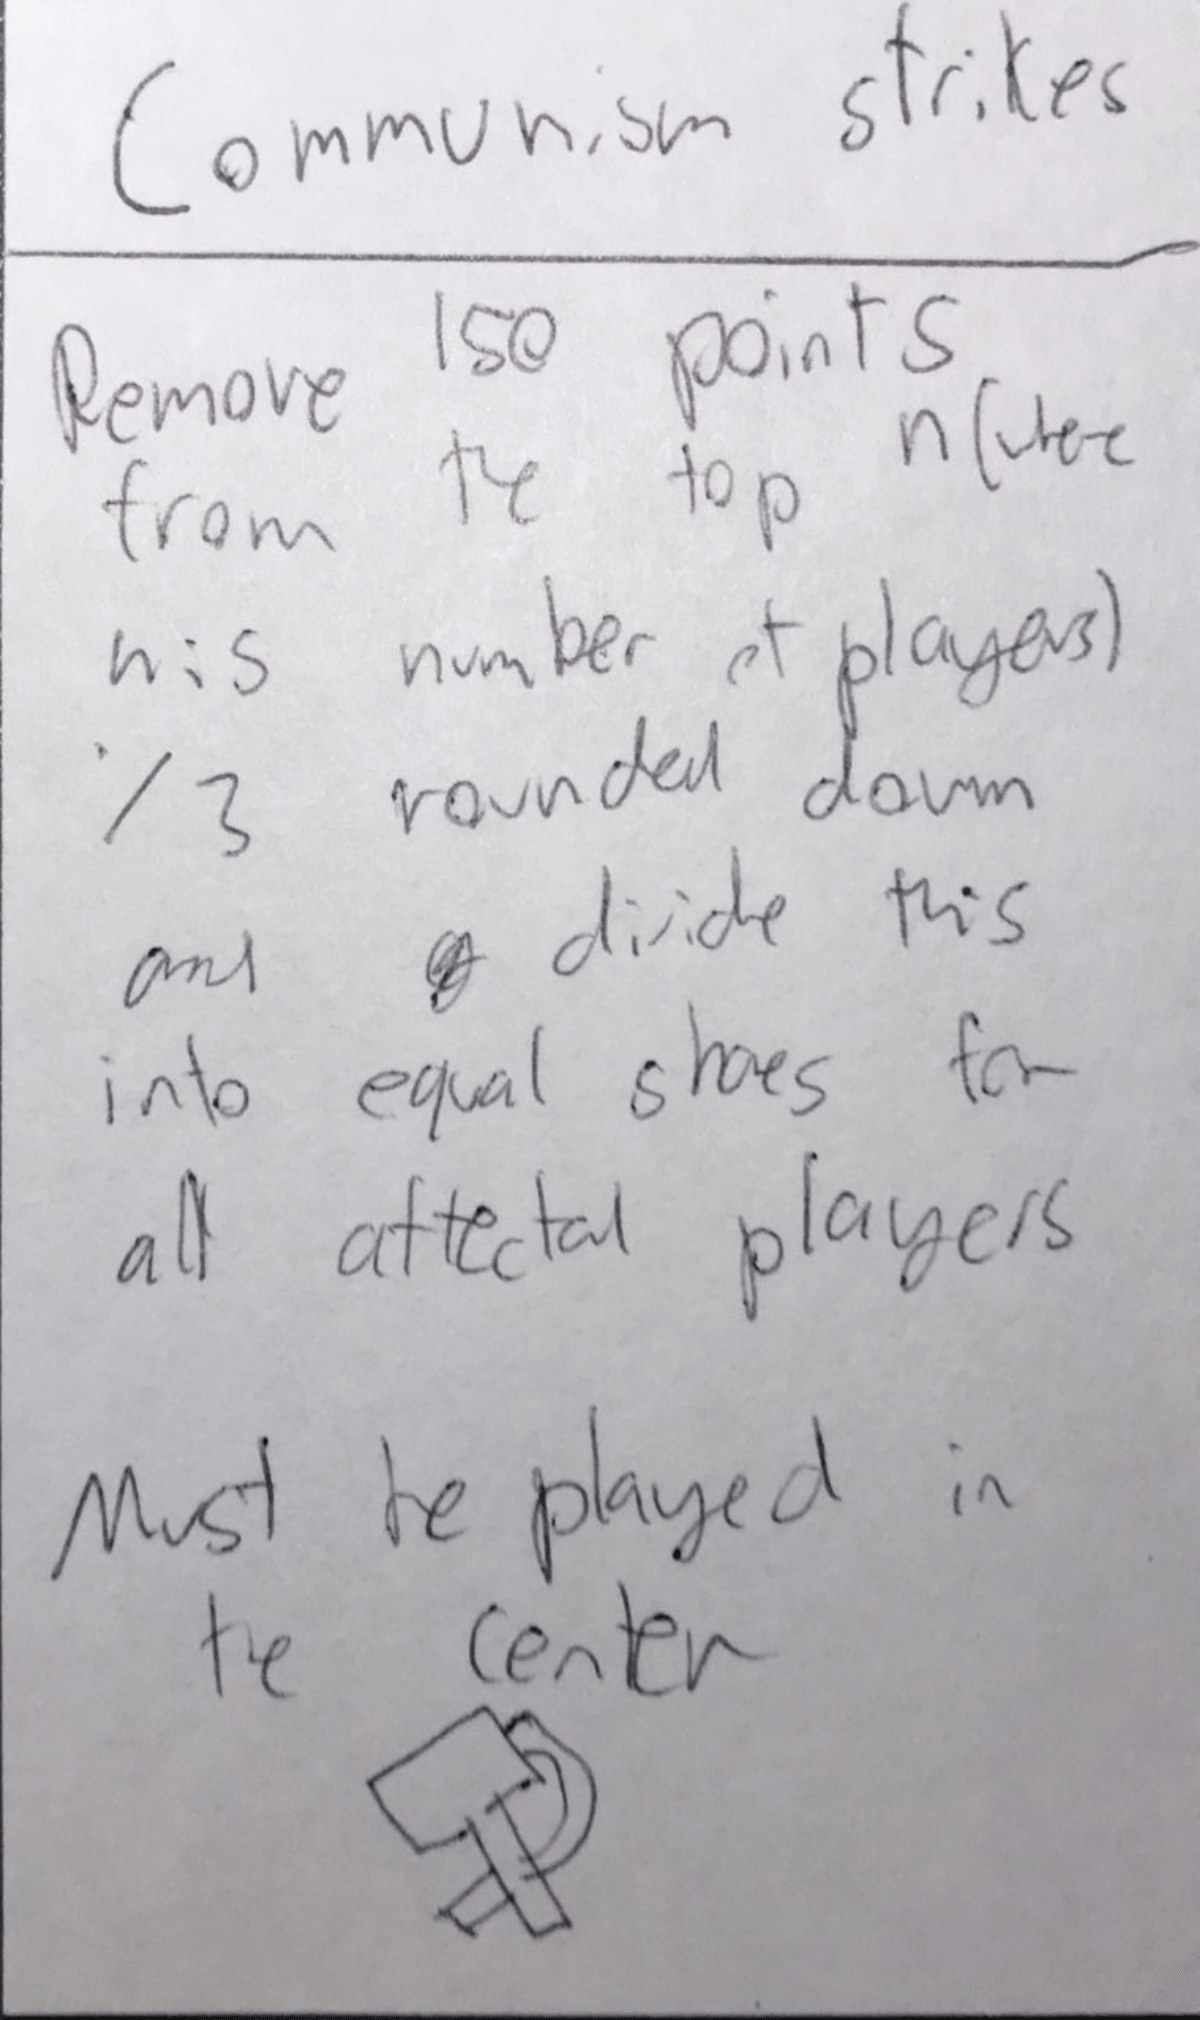 Communism strikes
Remove 150 points
from the top n(where
n is number of players)
% 3 rounded down
and divide this
into equal shares for
all affected players
Must be played in
the center